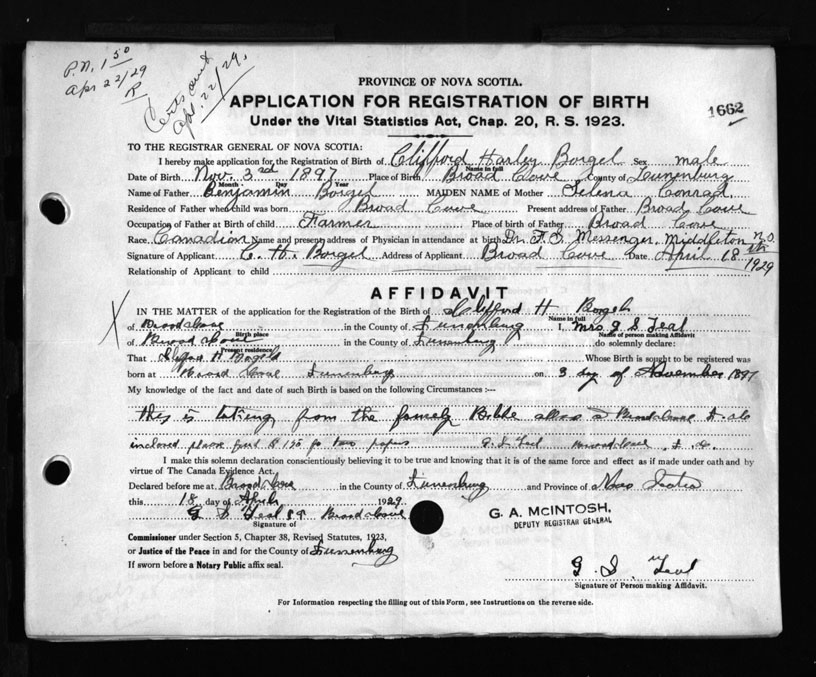 P.N. 1 50
Apr 22/29
R
Certs cut
Apl. 22/29.
PROVINCE OF NOVA SCOTIA.
APPLICATION FOR REGISTRATION OF BIRTH
1662
Under the Vital Statistics Act, Chap. 20, R. S. 1923.
TO THE REGISTRAR GENERAL OF NOVA SCOTIA:
I hereby make application for the Registration of Birth of Clifford Harley Borgel Sex male
Name in full
Date of Birth Nov. 3rd 1897 Place of Birth Broad Cove County of Lunenburg
Month Day Year
Name of Father Benjamin Borgel MAIDEN NAME of Mother Selena Conrad
Residence of Father when child was born Broad Cove Present address of Father Broad Cove
Occupation of Father at Birth of child Farmer Place of birth of Father Broad Cove
Race Canadian Name and present address of Physician in attendance at birth Dr. F. S. Messenger, Middleton N.S.
Signature of Applicant C. H. Borgel Address of Applicant Broad Cove Date April 18th 1929
Relationship of Applicant to child
AFFIDAVIT
IN THE MATTER of the application for the Registration of the Birth of Clifford H Borgel
Name in full
of Broad Cove in the County of Lunenburg I, Mrs G S Teal
Birth place Name of person making Affidavit
of Broad Cove in the County of Lunenburg do solemnly declare:
Present residence
That Whose Birth is sought to be registered was
born at Broad Cove Lunenburg on 3 day of November 1897
My knowledge of the fact and date of such Birth is based on the following Circumstances :—
this is taking from the family Bible Broad Cove
inclosed please find $1.50 for two papers G. S. Teal Broad Cove
I make this solemn declaration conscientiously believing it to be true and knowing that it is of the same force and effect as if made under oath and by
virtue of The Canada Evidence Act.
Declared before me at Broad Cove in the County of Lunenburg and Province of Nova Scotia
this 18 day of April 1929
G S Teal Broad Cove
Signature of
G. A. McINTOSH,
DEPUTY REGISTRAR GENERAL
Commissioner under Section 5, Chapter 38, Revised Statutes, 1923,
or Justice of the Peace in and for the County of Lunenburg
If sworn before a Notary Public affix seal.
G. S. Teal
Signature of Person making Affidavit.
For Information respecting the filling out of this Form, see Instructions on the reverse side.